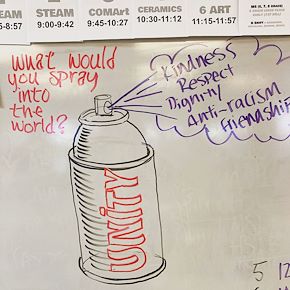 STEAM
9:00-9:42
COMArt
9:45-10:27
CERAMICS
10:30-11:12
6 ART
11:15-11:57
What would
you spray
into
the
world?
Kindness
Respect
Dignity
Anti-racism
Friendship
UNITY